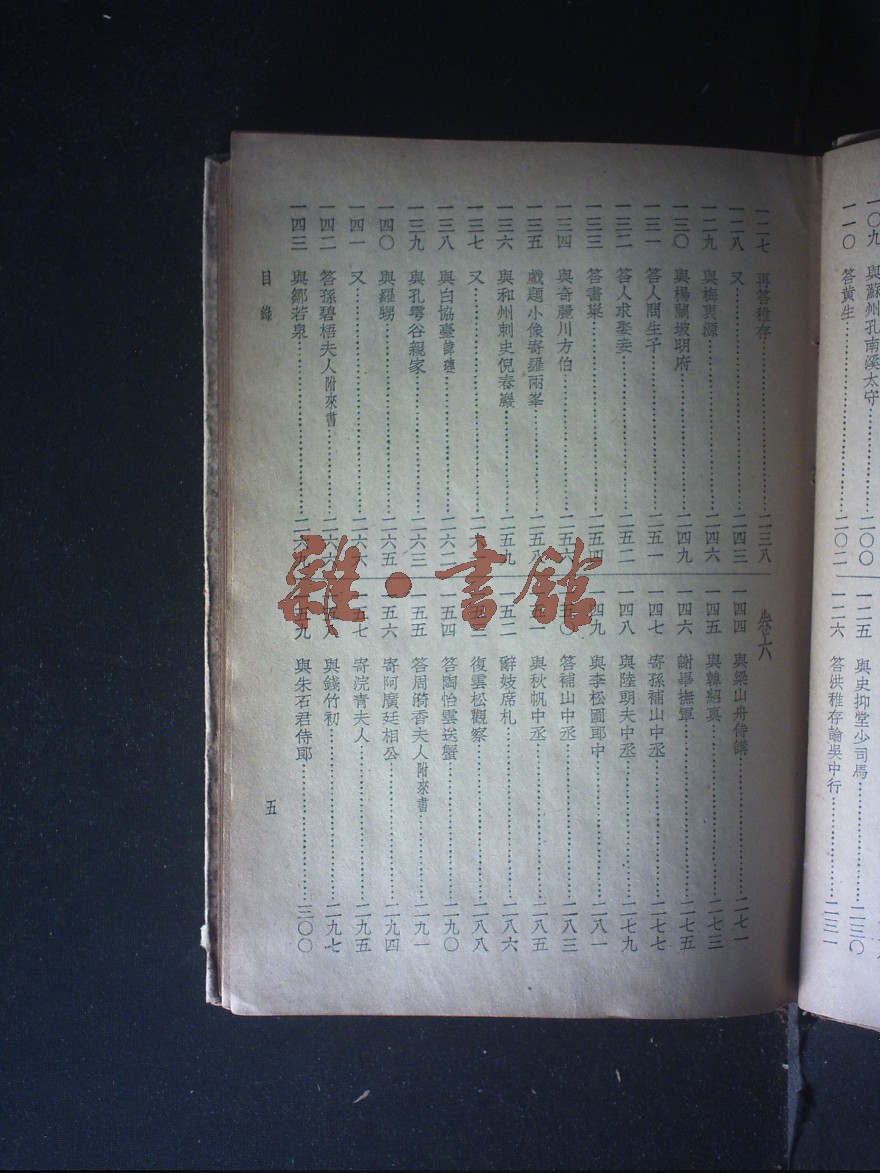 一〇九 與蘇州孔南溪太守 二〇〇
一一〇 答黃生……二〇二
一二五 與史抑堂少司馬……二三〇
一二六 答洪稚存論吳中行……二三一
一二七 再答稚存……二三八
一二八 又……二四三
一二九 與梅衷源……二四六
一三〇 與楊蘭坡明府……二四九
一三一 答人問生子……二五一
一三二 答人求娶妾……二五二
一三三 答書巢……二五四
一三四 與奇麗川方伯……二五六
一三五 戲題小像寄羅兩峯……二五八
一三六 與和州刺史倪春巖……二五九
一三七 又……二六
一三八 與白協臺諱璉……二六二
一三九 與孔雩谷親家……二六三
一四〇 與羅甥……二六五
一四一 又……二六六
一四二 答孫碧梧夫人附來書……二六六
一四三 與鄒若泉……二六九
卷六
一四四 與梁山舟侍講……二七一
一四五 與韓紹真……二七三
一四六 謝畢撫軍……二七五
一四七 寄孫補山中丞……二七七
一四八 與陸朗夫中丞……二七九
一四九 與李松圃郎中……二八一
一五〇 答補山中丞……二八三
一五一 與秋帆中丞……二八五
一五二 辭妓席札……二八六
一五三 復雲松觀察……二八八
一五四 答陶怡雲送蟹……二九〇
一五五 答周漪香夫人附來書……二九一
一五六 寄阿廣廷相公……二九四
一五七 寄浣青夫人……二九五
一五八 與錢竹初……二九七
一五九 與朱石君侍郎……三〇〇
目錄
五
雜·書館